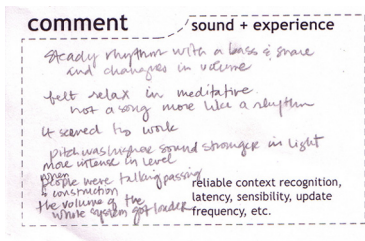 comment
sound + experience
steady rhythm with a bass & snare
and changes in volume
felt relax in meditative
not a song more like a rhythm
it seemed to work
pitch was higher sound stronger in light
more intense in level
when
people were talking passing
+ construction
the volume of the
whole system got louder
reliable context recognition,
latency, sensibility, update
frequency, etc.